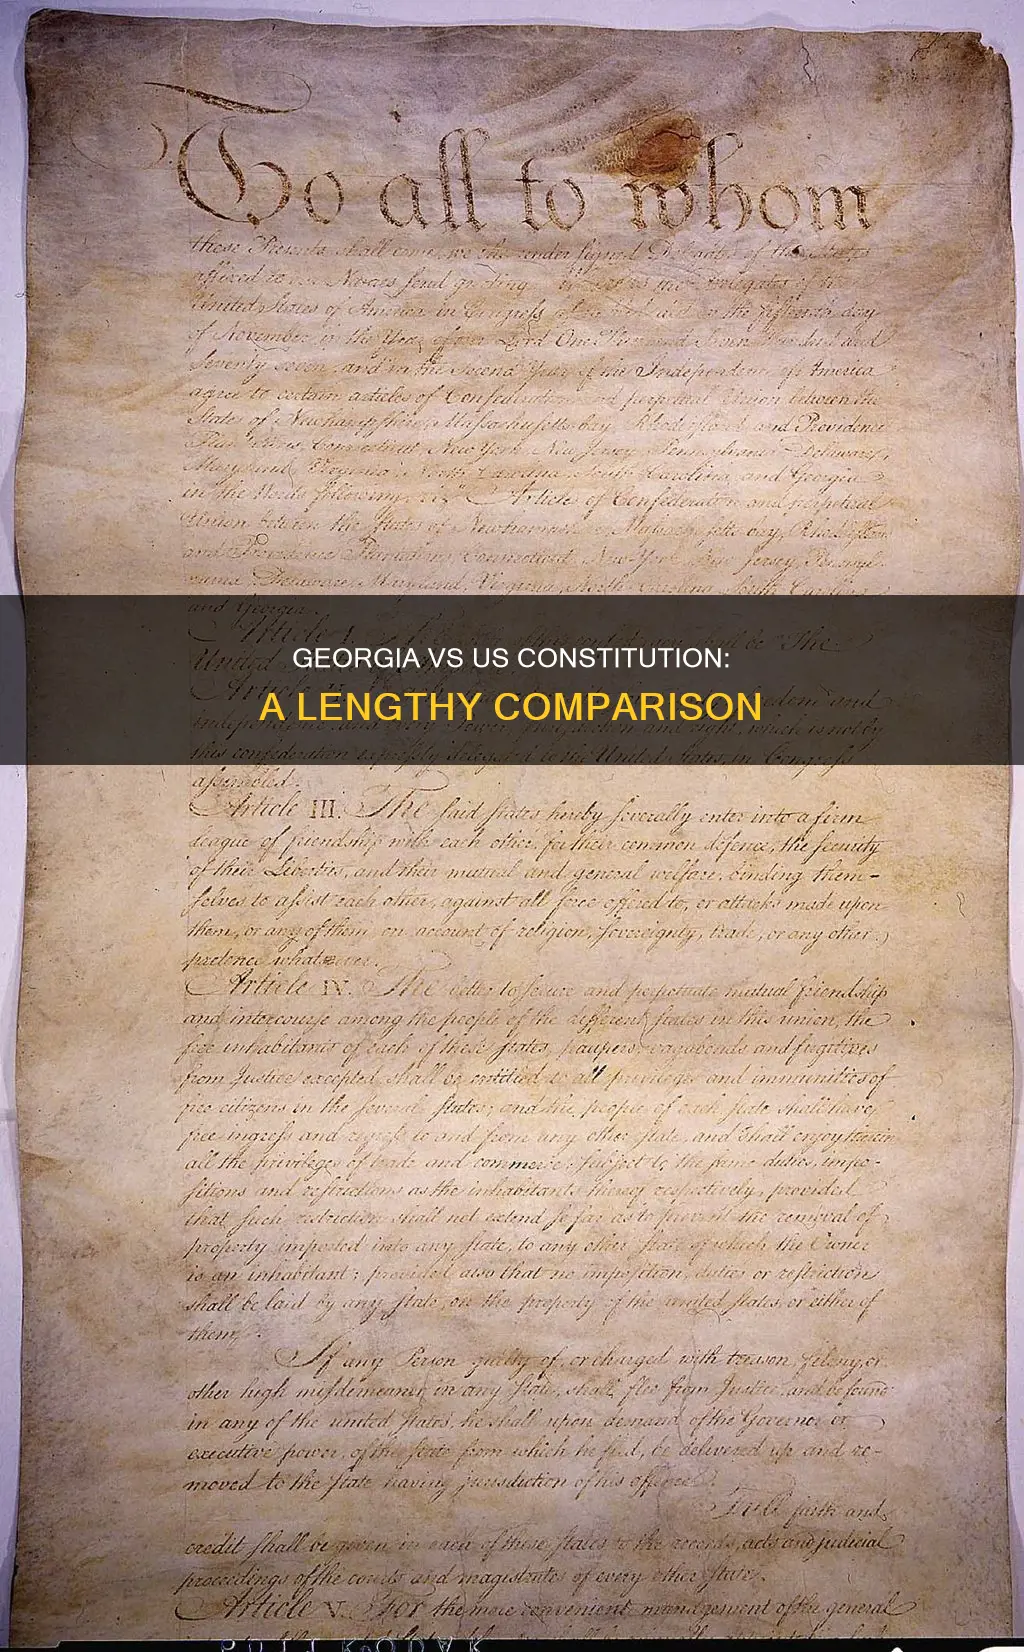 To all to whom
these Presents shall come, we the under signed Delegates of the States
affixed to our Names send greeting. Whereas the Delegates of the
United States of America in Congress assembled did on the fifteenth day
of November in the Year of our Lord One Thousand Seven Hundred and
Seventy seven, and in the Second Year of the Independence of America
agree to certain articles of Confederation and perpetual Union between the
States of Newhampshire, Massachusetts-bay, Rhodeisland and Providence
Plantations, Connecticut, New York, New Jersey, Pennsylvania, Delaware,
Maryland, Virginia, North-Carolina, South-Carolina, and Georgia
in the Words following, viz. "Articles of Confederation and perpetual
Union between the States of Newhampshire, Massachusetts-bay, Rhodeisland
and Providence Plantations, Connecticut, New York, New Jersey, Pennsyl-
vania, Delaware, Maryland, Virginia, North-Carolina, South-Carolina
and Georgia.
Article I.
GEORGIA VS US CONSTITUTION:
United
Article II.
A LENGTHY COMPARISON
independence, and every Power, Jurisdiction and right, which is not by
this confederation expressly delegated to the United States, in Congress
assembled.
Article III. The said states hereby severally enter into a firm
league of friendship with each other, for their common defence, the security
of their Liberties, and their mutual and general welfare, binding them-
selves to assist each other, against all force offered to, or attacks made upon
them, or any of them, on account of religion, sovereignty, trade, or any other
pretence whatever.
Article IV. The better to secure and perpetuate mutual friendship
and intercourse among the people of the different states in this union, the
free inhabitants of each of these states, paupers, vagabonds and fugitives
from Justice excepted, shall be entitled to all privileges and immunities of
free citizens in the several states; and the people of each state shall have
free ingress and regress to and from any other state, and shall enjoy therein
all the privileges of trade and commerce, subject to the same duties, impo-
sitions and restrictions as the inhabitants thereof respectively, provided
that such restriction shall not extend so far as to prevent the removal of
property imported into any state, to any other state of which the Owner
is an inhabitant; provided also that no imposition, duties or restriction
shall be laid by any state, on the property of the united states, or either of
them.
If any Person guilty of, or charged with treason, felony, or
other high misdemeanor in any state, shall flee from Justice, and be found
in any of the united states, he shall upon demand of the Governor or
executive power, of the state from which he fled, be delivered up and re-
moved to the state having jurisdiction of his offence.
Full faith and
credit shall be given in each of these states to the records, acts and judicial
proceedings of the courts and magistrates of every other state.
Article V. For the more convenient management of the general